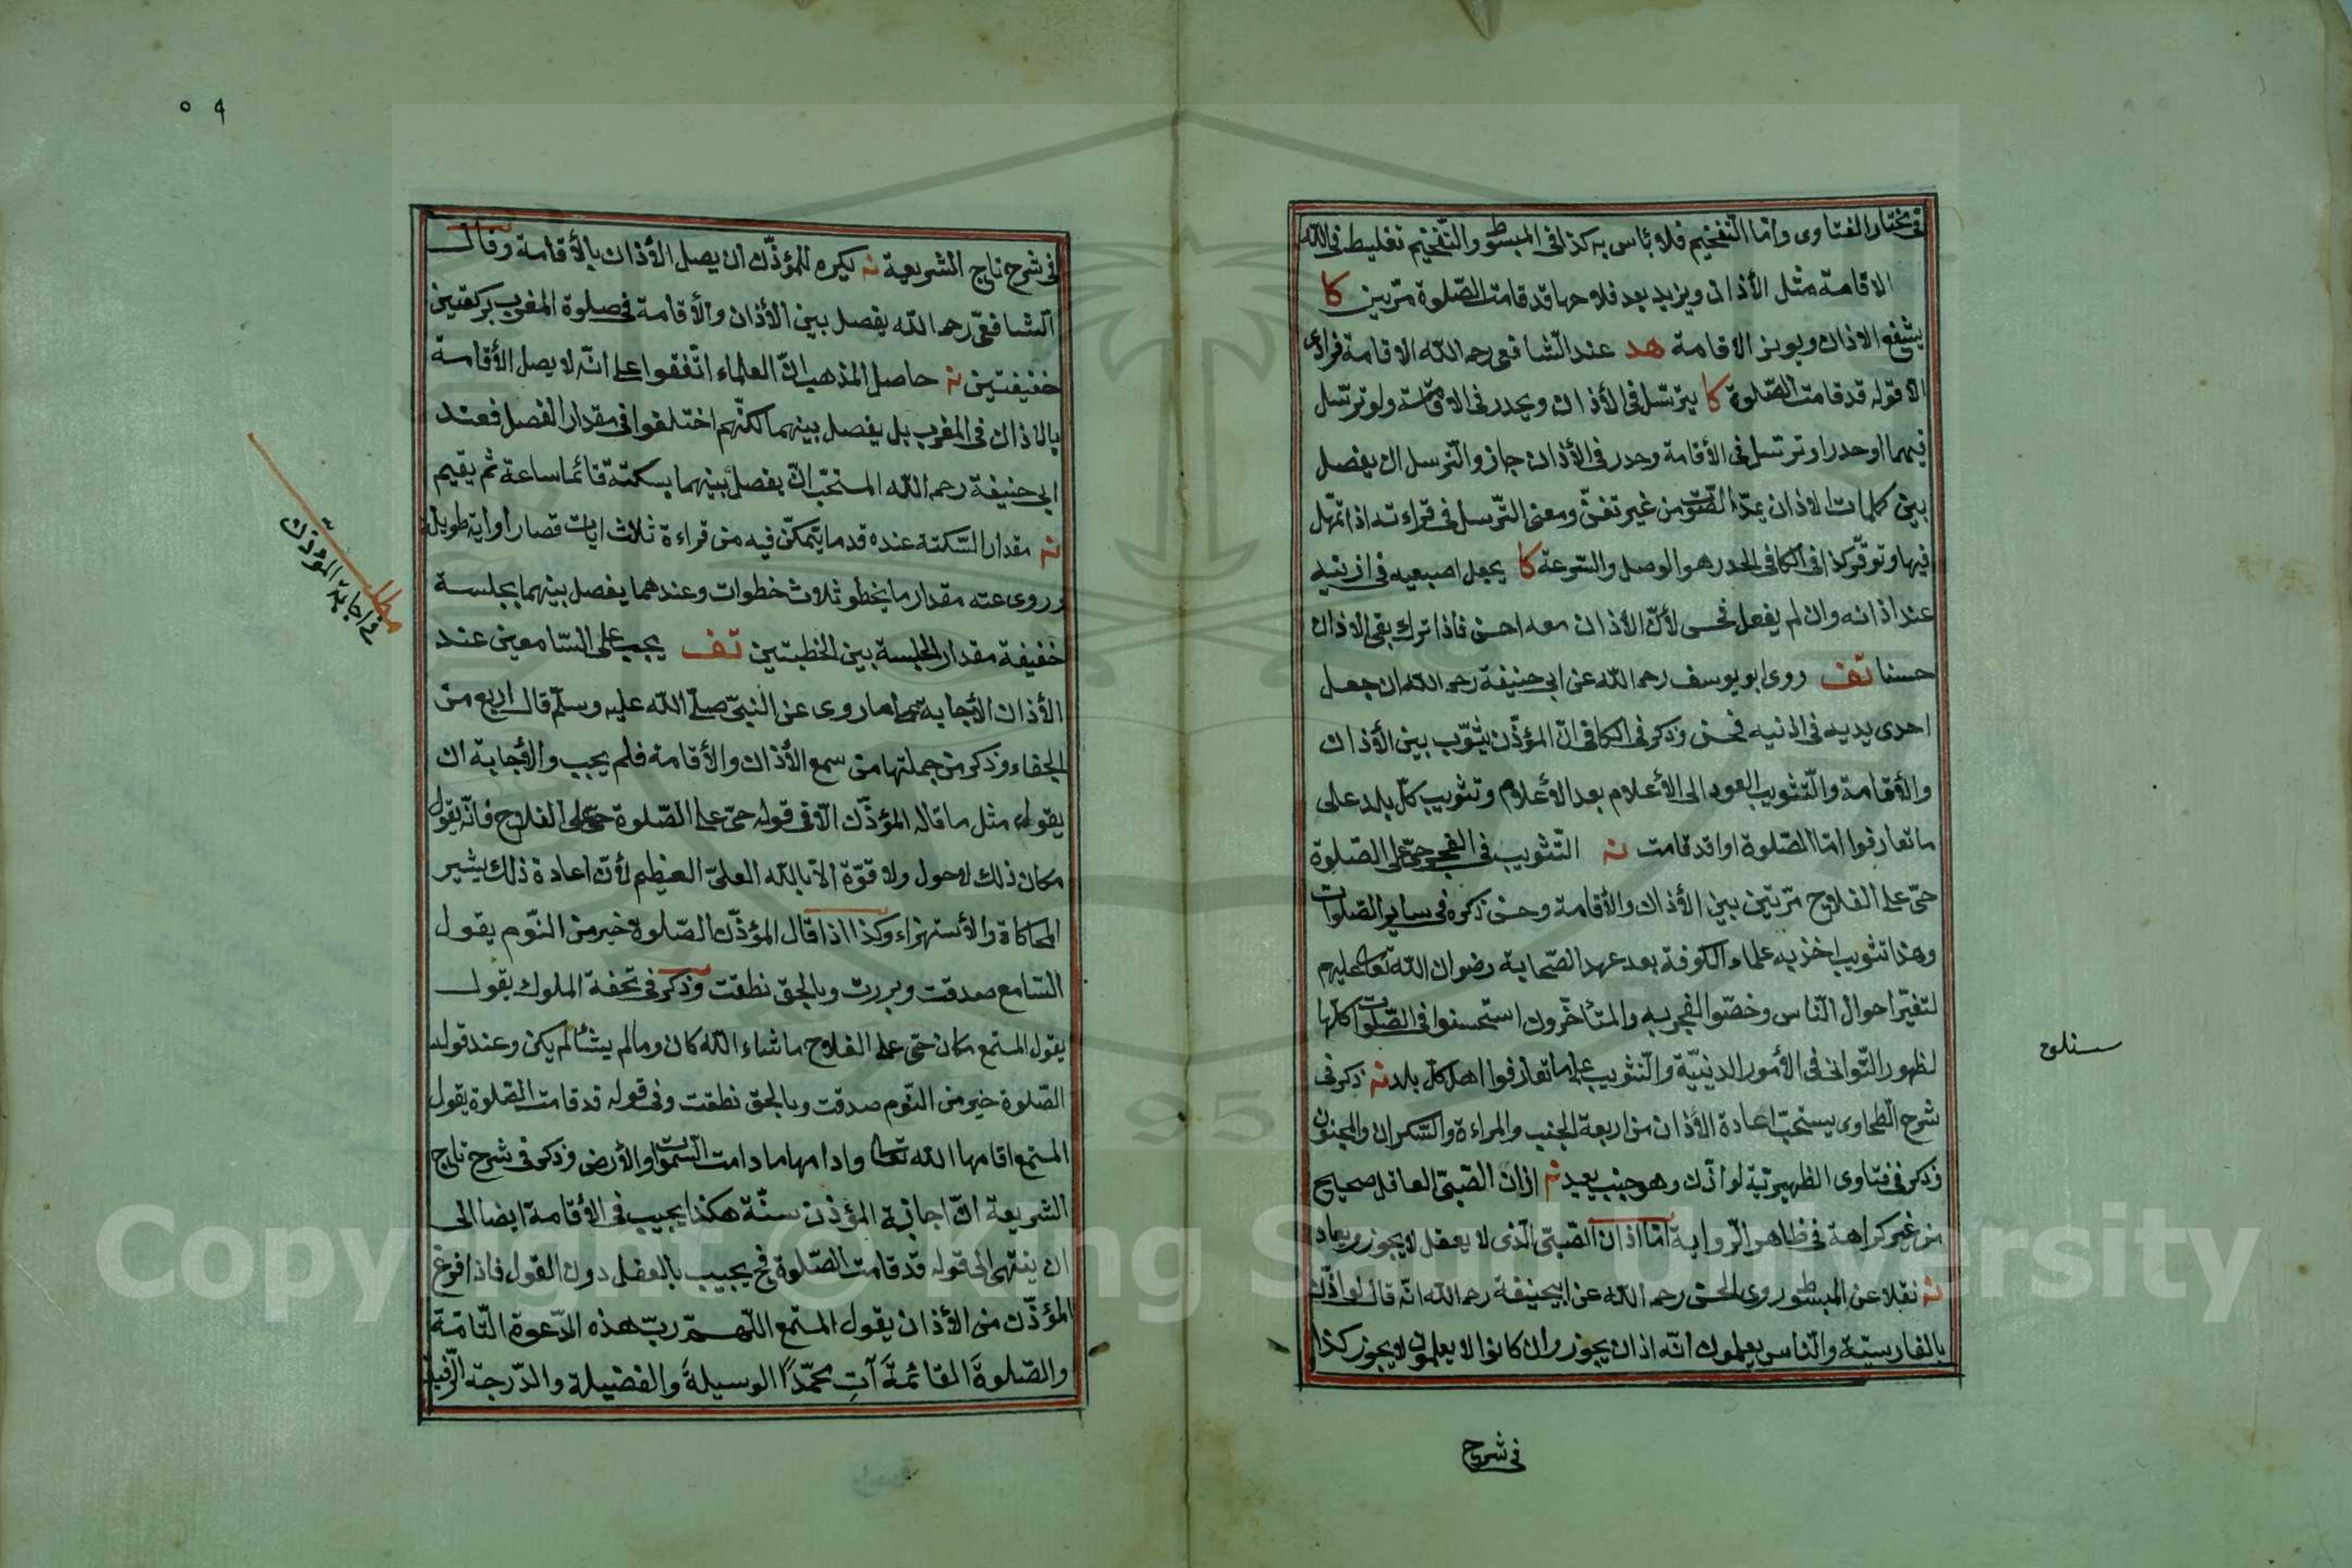 فى مختار الفتاوى واما التفخيم فلا بأس به كذا فى المبسوط والتفخيم تغليظ فى الله
الاقامة مثل الأذان ويزيد بعد فلاحها قد قامت الصّلوة مرّتين كا
يشفع الاذان ويوتر الاقامة هد عند الشافعى رحمه الله الاقامة فرادى
الا قوله قد قامت الصّلوة كا يترسّل فى الأذان ويحدر فى الاقامة ولو ترسّل
فيهما او حدر او ترسّل فى الأقامة وحدر فى الأذان جاز والترسل ان يفصل
بين كلمات الاذان يمدّ الصّوت من غير تغنّ ومعنى الترّسل فى قراءته اذا تمهّل
فيها وتوقّر كذا فى الكافى الحدر هو الوصل والسّرعة كا يجعل اصبعيه فى اذنيه
عند اذانه وان لم يفعل فحسن لأنّ الأذان معه احسن فاذا ترك بقى الاذان
حسنا تف روى ابو يوسف رحمه الله عن ابى حنيفة رحمه الله ان جعل
احدى يديه فى اذنيه فحسن وذكر فى الكافى انّ المؤذّن يثوّب بين الأذان
والأقامة والتّثويب العود الى الأعلام بعد الأعلام وتثويب كلّ بلد على
ما تعارفوا امّا الصّلوة او قد قامت نه التّثويب فى الفجر حىّ على الصّلوة
حىّ على الفلاح مرّتين بين الأذان والأقامة وحسن ذكره فى ساير الصّلوات
وهذا تثويب اخذ به علماء الكوفة بعد عهد الصّحابة رضوان الله تعا عليهم
لتغيّر احوال النّاس وخصّوا الفجر به والمتأخّرون استحسنوا فى الصّلوات كلّها
لظهور التّوانى فى الأمور الدينيّة والتّثويب على ما تعارفوا اهل كلّ بلد نه ذكر فى
شرح الطحاوى يستحبّ اعادة الأذان من اربعة الجنب والمراءة والسّكران والمجنون
وذكر فى فتاوى الظهيريّة لو اذّن وهو جنب يعيد نه اذان الصّبىّ العاقل صحيح
من غير كراهة فى ظاهر الرّواية امّا اذان الصّبىّ الّذى لا يعقل لا يجوز ويعاد
نه نقلا عن المبسوط وروى الحسن رحمه الله عن ابيحنيفة رحمه الله انّه قال لو اذّن
بالفارسيّة والنّاس يعلمون انّه اذان يجوز وان كانوا لا يعلمون لا يجوز كذا
فى شرح
٥٩
فى شرح تاج الشريعة نه يكره للمؤذّن ان يصل الأذان بالأقامة وقال
الشافعىّ رحمه الله يفصل بين الأذان والأقامة فى صلوة المغرب بركعتين
خفيفتين نه حاصل المذهب انّ العلماء اتّفقوا على انّه لا يصل الأقامة
بالاذان فى المغرب بل يفصل بينهما لكنّهم اختلفوا فى مقدار الفصل فعند
ابى حنيفة رحمه الله المستحبّ انّ يفصل بينهما بسكتة قائما ساعة ثم يقيم
نه مقدار السّكتة عنده قدما يتمكّن فيه من قراءة ثلاث ايات قصار او اية طويلة
وروى عنه مقدار ما يخطو ثلاث خطوات وعندهما يفصل بينهما بجلسة
خفيفة مقدار الجلسة بين الخطبتين تف يجب على السّامعين عند
الأذان الأجابة لما روى عن النبىّ صلّى الله عليه وسلّم قال اربع من
الجفاء وذكر من جملتها من سمع الأذان والأقامة فلم يجب والأجابة ان
يقول مثل ما قاله المؤذّن الّا فى قوله حىّ على الصّلوة حىّ على الفلاح فانّه يقول
مكان ذلك لا حول ولا قوّة الّا بالله العلىّ العظيم لأنّ اعادة ذلك يشير
المحاكاة والأستهزاء وكذا اذا قال المؤذّن الصّلوة خير من النّوم يقول
السّامع صدقت وبررت وبالحق نطقت وذكر فى تحفة الملوك يقول
يقول المستمع مكان حىّ على الفلاح ماشاء الله كان ومالم يشأ لم يكن وعند قوله
الصّلوة خير من النّوم صدقت وبالحق نطقت وفى قوله قد قامت الصّلوة يقول
المستمع اقامها الله تعا وادامها مادامت السّموات والأرض وذكر فى شرح تاج
الشريعة انّ اجابة المؤذن سنّة هكذا يجيب فى الأقامة ايضا الى
ان ينتهى الى قوله قد قامت الصّلوة فح يجيب بالفعل دون القول فاذا فرغ
المؤذّن من الأذان يقول المستمع اللّهمّ ربّ هذه الدّعوة التّامّة
والصّلوةَ القائمةَ آتِ محمّدًا الوسيلةَ والفضيلة والدّرجة الرّفيعة
مطلب
فى اجابة المؤذن
Copyright © King Saud University